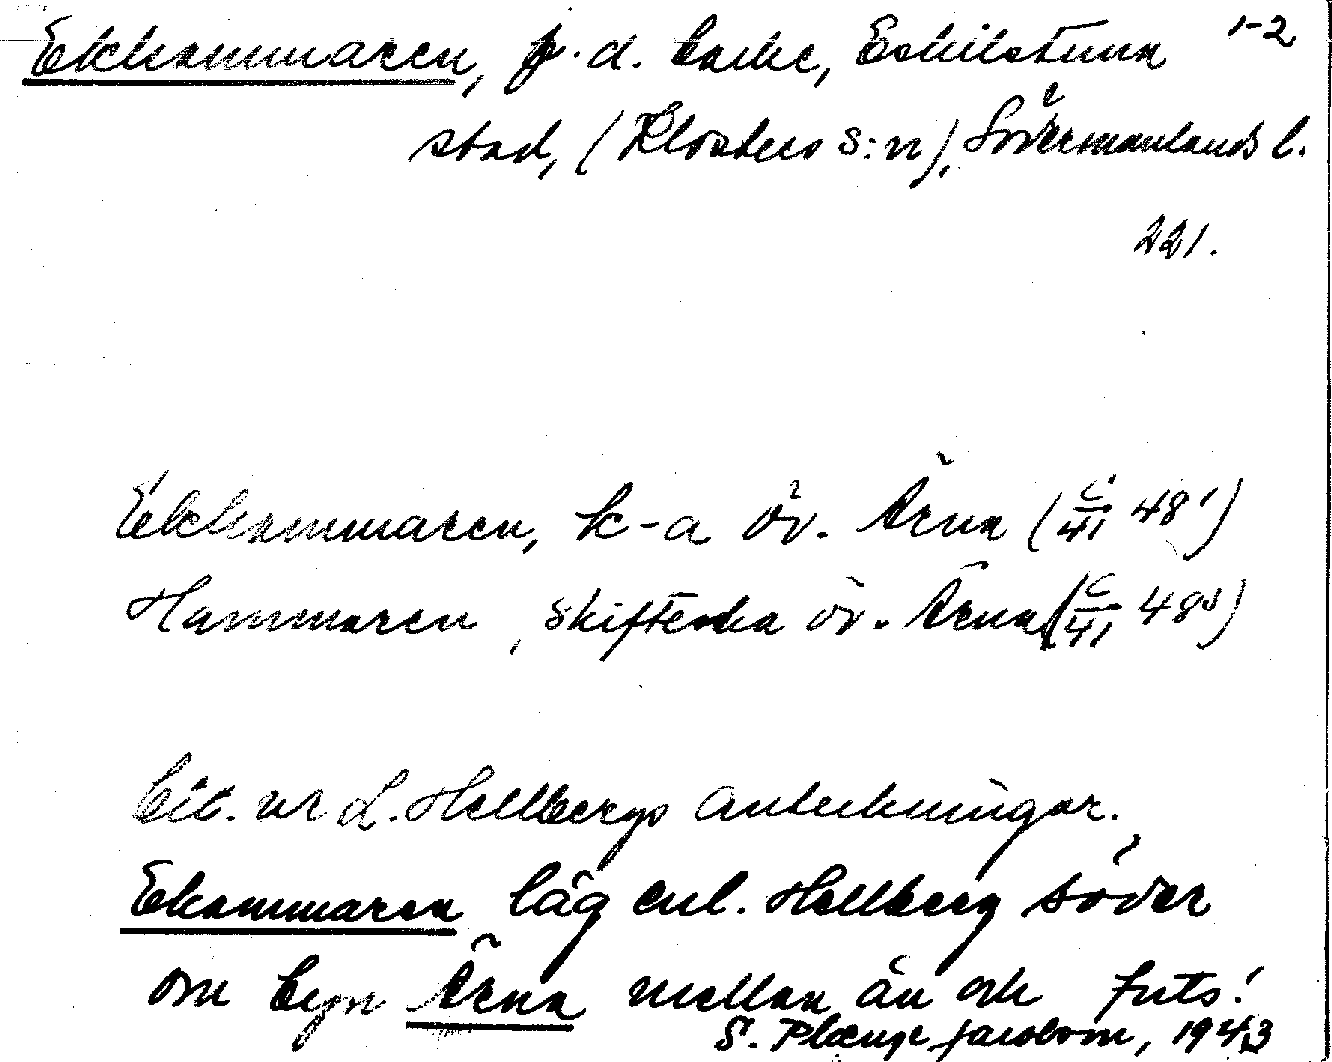 Ekhammaren, f.d. backe, Eskilstuna 1-2
stad, (Klosters s:n), Södermanlands l.
221.
Ekhammaren, k-a öv. Ärna (C/41 48¹)
Hammaren, skifteska öv. Ärna (C/41 48)
Cit. ur L. Hellbergs anteckningar.
Ekammaren låg enl. Hellberg söder
om byn Ärna mellan ån och
S. Jacobson, 1943